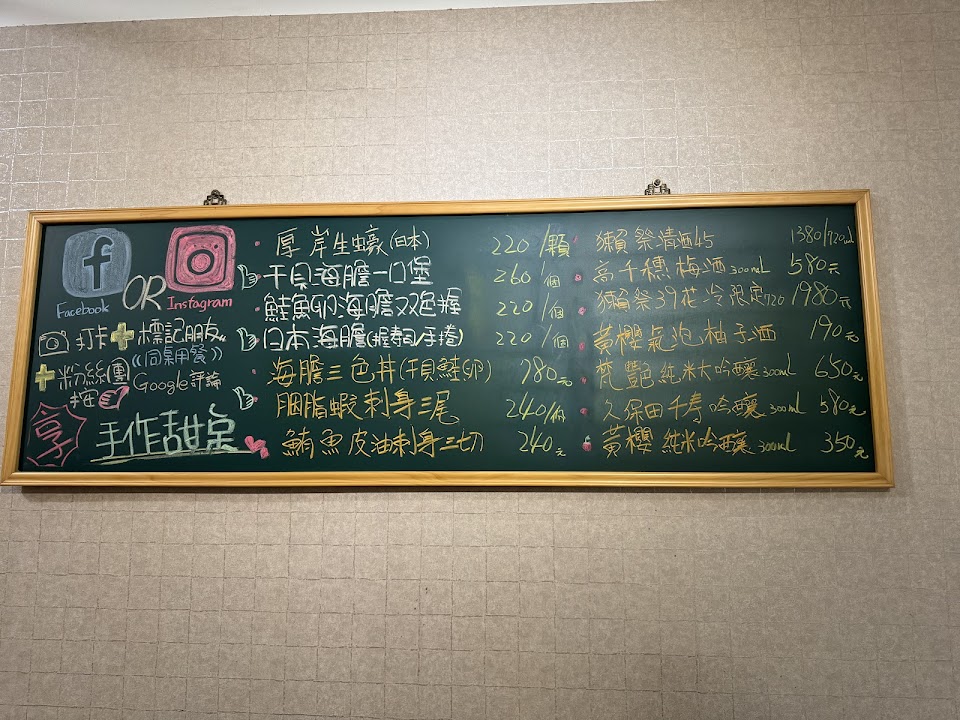 Facebook OR Instagram
打卡+標記朋友
《同桌用餐》
+粉絲團 Google評論
按
享 手作甜
厚岸生蠔(日本) 220/顆
干貝海膽一口堡 260/個
鮭魚卵海膽双色握 220/個
日本海膽(握壽司/手捲) 220/個
海膽三色丼(干貝鮭卵) 780元
胭脂蝦刺身三尾 240/份
鮪魚皮油刺身三切 240元
獺祭清酒45 1380/720ml
高千穗梅酒300ml 580元
獺祭39花冷限定720 1980元
黃櫻氣泡柚子酒 190元
梵艷純米大吟釀300ml 650元
久保田千寿吟釀300ml 580元
黃櫻純米吟釀300ml 350元